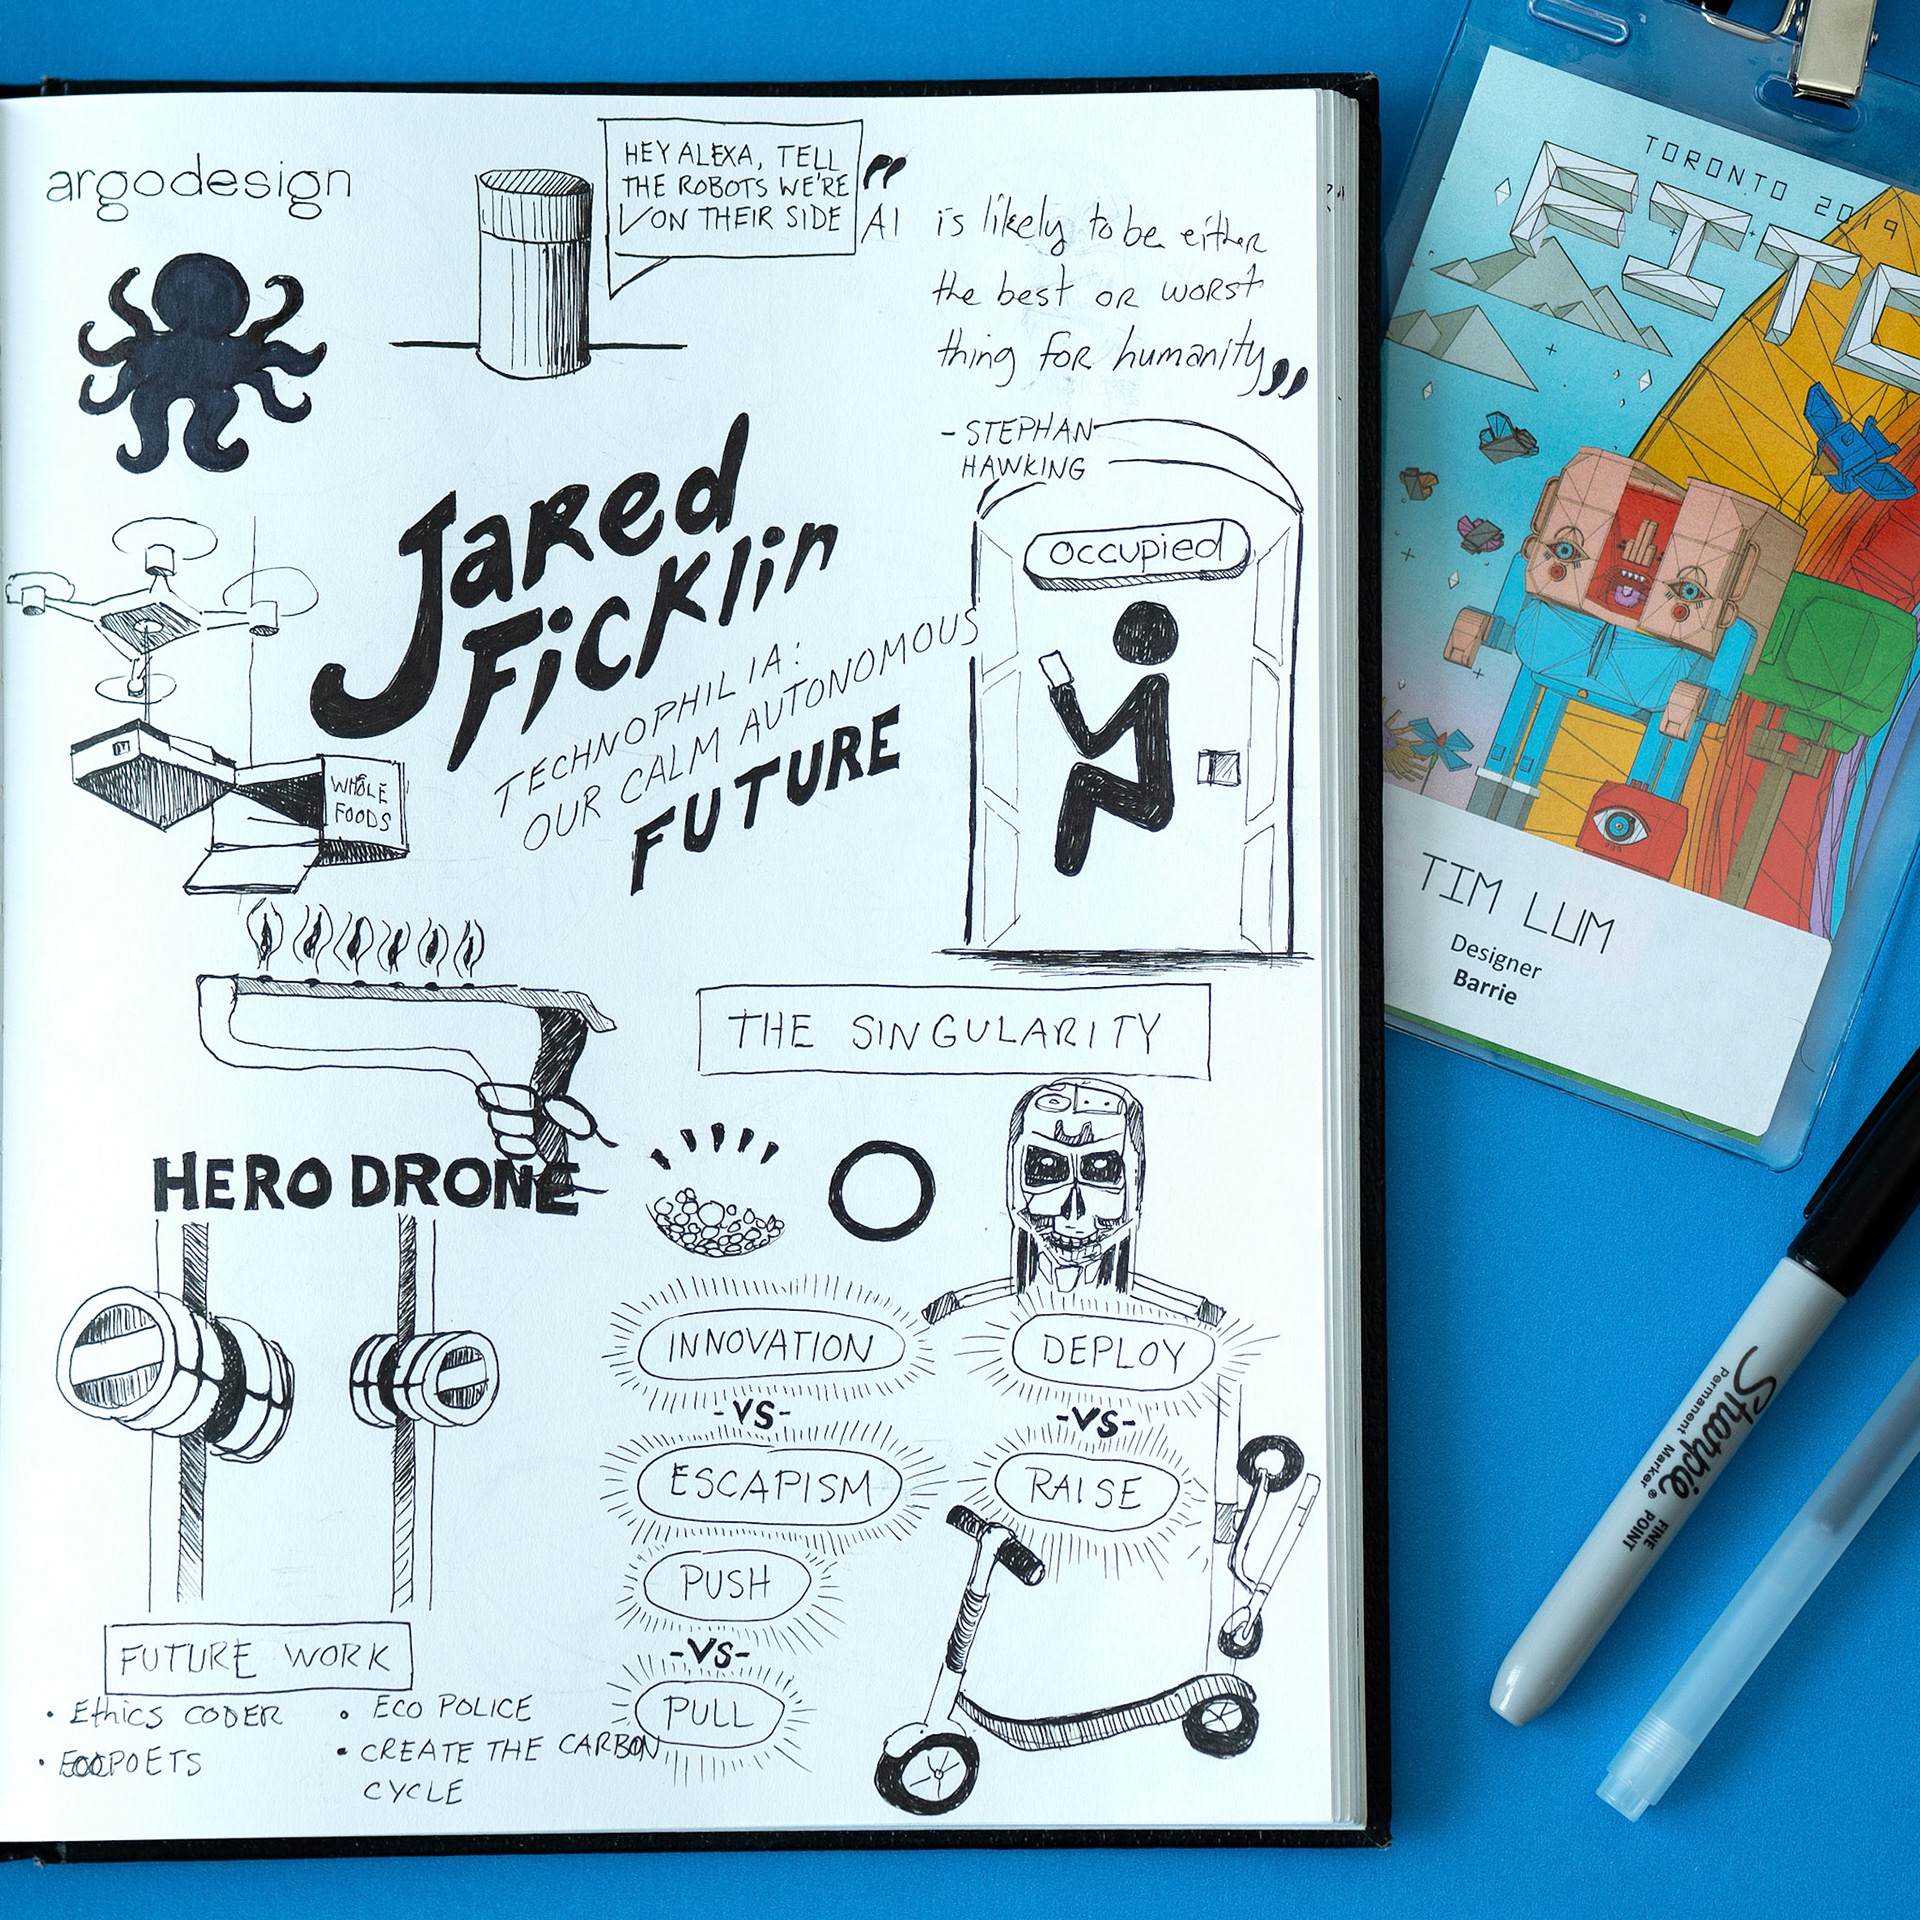 argodesign
HEY ALEXA, TELL
THE ROBOTS WE'RE
ON THEIR SIDE
" AI is likely to be either
the best or worst
thing for humanity "
- STEPHAN
HAWKING
Jared
Ficklin
TECHNOPHILIA:
OUR CALM AUTONOMOUS
FUTURE
occupied
WHOLE
FOODS
THE SINGULARITY
HERO DRONE
INNOVATION
-VS-
ESCAPISM
DEPLOY
-VS-
RAISE
PUSH
-VS-
PULL
FUTURE WORK
• Ethics CODER
• POETS
• ECO POLICE
• CREATE THE CARBON
CYCLE
TORONTO 2019
FITC
TIM LUM
Designer
Barrie
Sharpie
Permanent Marker®
FINE
POINT